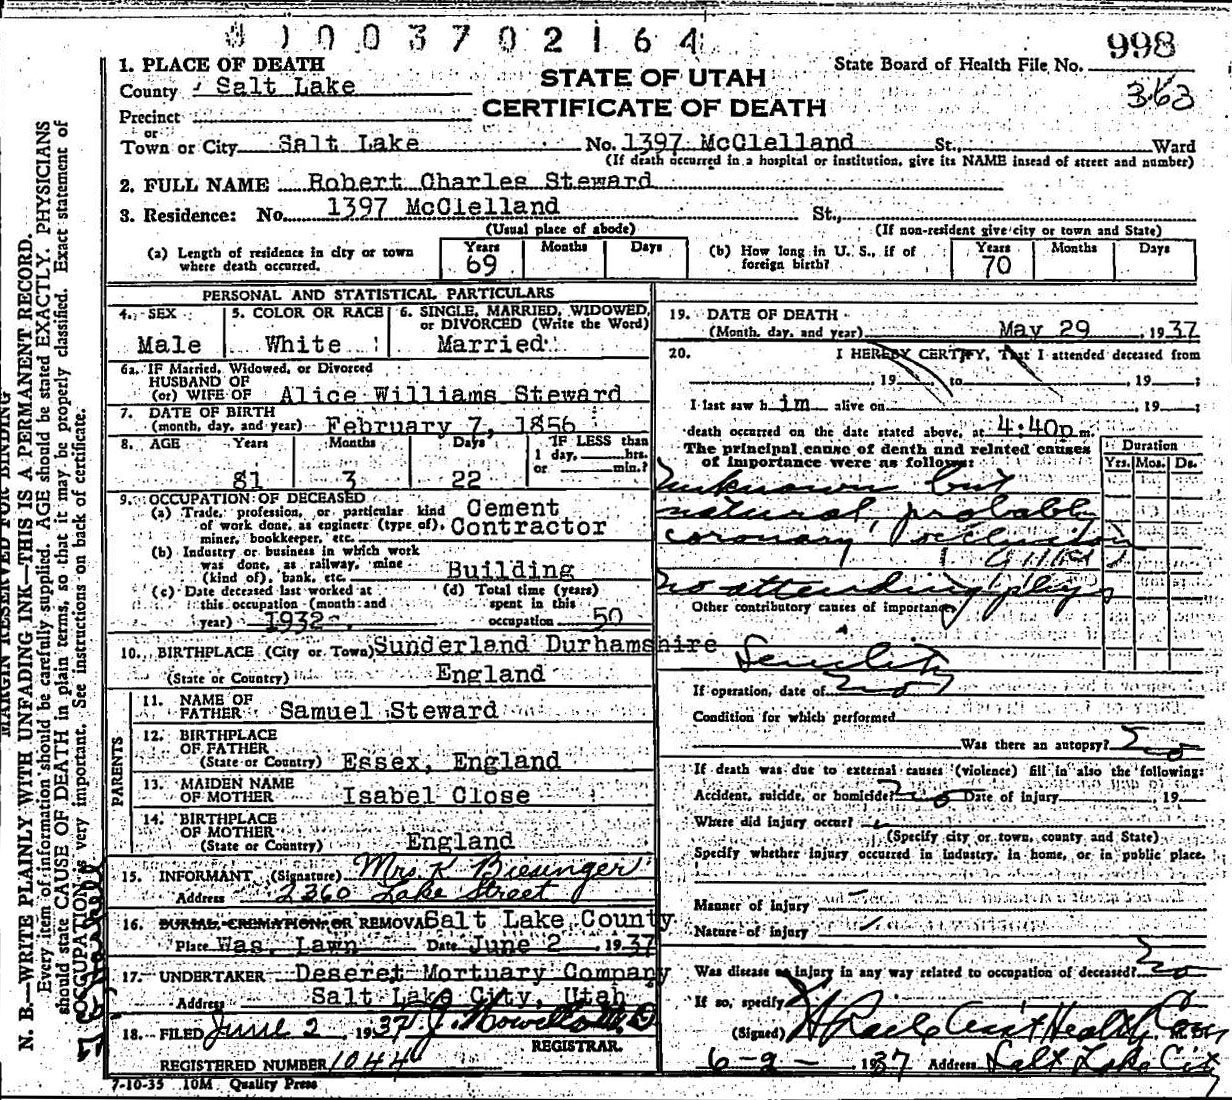 1003702164
998
State Board of Health File No.
363
STATE OF UTAH
CERTIFICATE OF DEATH
1. PLACE OF DEATH
County Salt Lake
Precinct
or
Town or City Salt Lake No. 1397 McClelland St., Ward
(If death occurred in a hospital or institution, give its NAME insead of street and number)
2. FULL NAME Robert Charles Steward
3. Residence: No. 1397 McClelland St.,
(Usual place of abode) (If non-resident give city or town and State)
(a) Length of residence in city or town where death occurred. Years 69 Months Days
(b) How long in U. S., if of foreign birth? Years 70 Months Days
PERSONAL AND STATISTICAL PARTICULARS
4. SEX Male
5. COLOR OR RACE White
6. SINGLE, MARRIED, WIDOWED, or DIVORCED (Write the Word) Married
6a. IF Married, Widowed, or Divorced
HUSBAND OF
(or) WIFE OF Alice Williams Steward
7. DATE OF BIRTH
(month, day, and year) February 7, 1856
8. AGE Years 81 Months 3 Days 22 IF LESS than 1 day, hrs. or min.?
9. OCCUPATION OF DECEASED
(a) Trade, profession, or particular kind of work done, as engineer (type of), miner, bookkeeper, etc. Cement Contractor
(b) Industry or business in which work was done, as railway, mine (kind of), bank, etc. Building
(c) Date deceased last worked at this occupation (month and year) 1932
(d) Total time (years) spent in this occupation 50
10. BIRTHPLACE (City or Town) Sunderland Durhamshire
(State or Country) England
PARENTS
11. NAME OF FATHER Samuel Steward
12. BIRTHPLACE OF FATHER
(State or Country) Essex, England
13. MAIDEN NAME OF MOTHER Isabel Close
14. BIRTHPLACE OF MOTHER
(State or Country) England
15. INFORMANT (Signature) Mrs K Biesinger
Address 2360 Lake Street
16. BURIAL, CREMATION, OR REMOVAL Salt Lake County
Place Was. Lawn Date June 2, 1937
17. UNDERTAKER Deseret Mortuary Company
Address Salt Lake City, Utah
18. FILED June 2, 1937
REGISTRAR.
REGISTERED NUMBER 1044
7-10-35 10M Quality Press
19. DATE OF DEATH
(Month, day, and year) May 29, 1937
20. I HEREBY CERTIFY, That I attended deceased from
, 19 to , 19 ;
I last saw h im alive on , 19 ;
death occurred on the date stated above, at 4:40p m.
The principal cause of death and related causes of importance were as follows:
Duration
Yrs. Mos. Ds.
Unknown but
natural, probably
coronary occlusion
no attending phys
Other contributory causes of importance
Senility
If operation, date of no
Condition for which performed
Was there an autopsy? no
If death was due to external causes (violence) fill in also the following:
Accident, suicide, or homicide? no Date of injury , 19
Where did injury occur?
(Specify city or town, county and State)
Specify whether injury occurred in industry, in home, or in public place.
Manner of injury
Nature of injury
Was disease or injury in any way related to occupation of deceased? no
If so, specify
(Signed)
6-2- , 1937 Address Salt Lake City
MARGIN RESERVED FOR BINDING
N. B.—WRITE PLAINLY WITH UNFADING INK—THIS IS A PERMANENT RECORD.
Every item of information should be carefully supplied. AGE should be stated EXACTLY. PHYSICIANS
should state CAUSE OF DEATH in plain terms, so that it may be properly classified. Exact statement of
OCCUPATION is very important. See instructions on back of certificate.